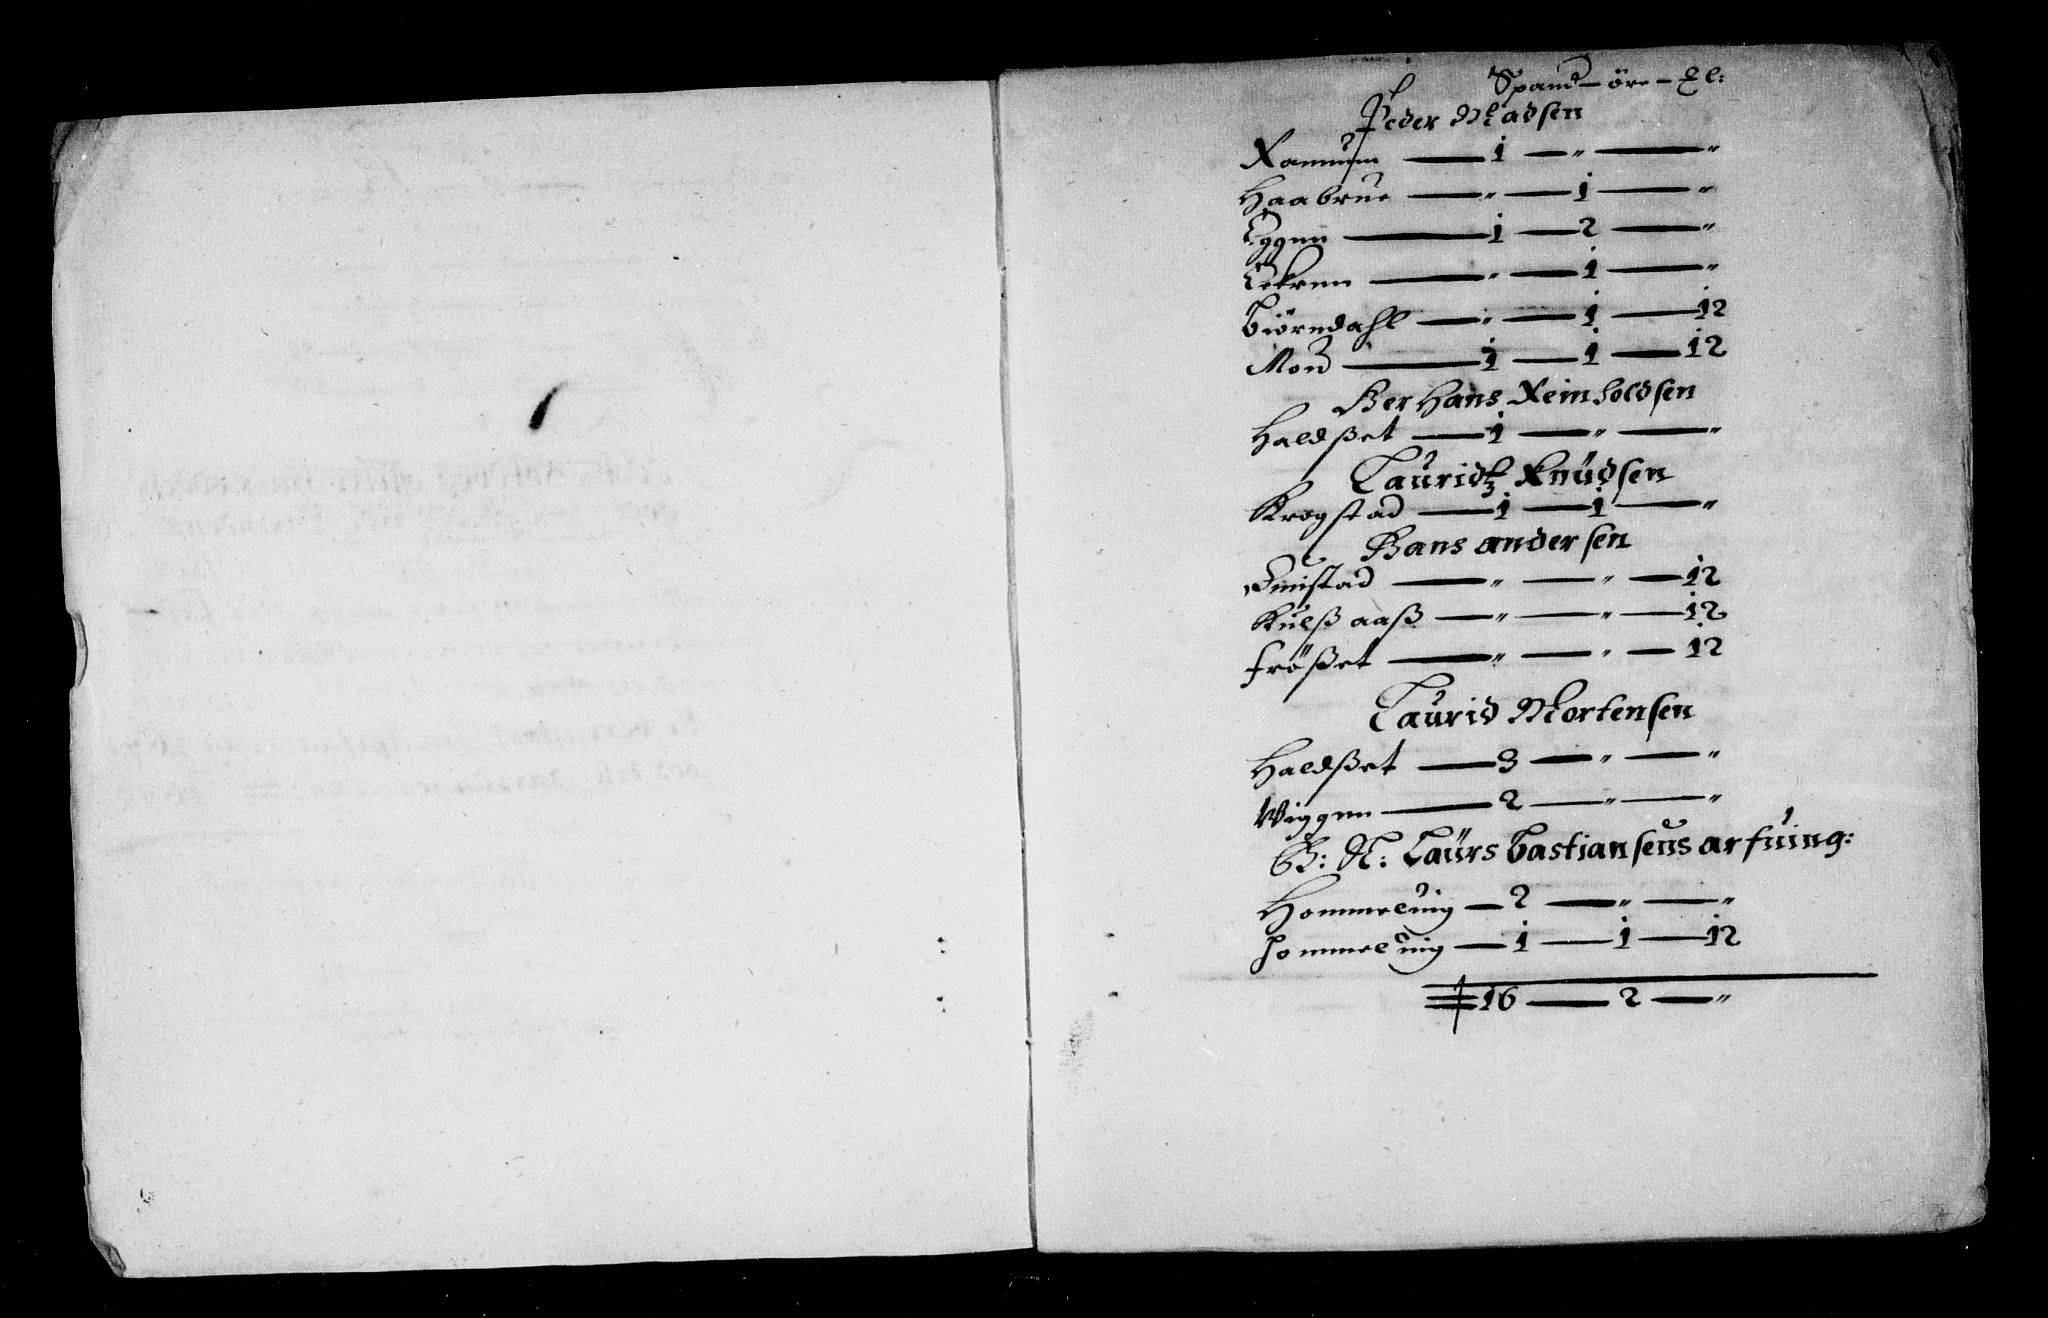 Spand – öre – El:
Peder Madsen
Ramum — 1 — " — "
Haabrue — " — 1 — "
Eggen — 1 — 2 — "
Eckren — " — 1 — "
Biörndahl — " — 1 — 12
Mon — 1 — 1 — 12
Her Hans Reinholdsen
Haldßet — 1 — " — "
Lauridtz Knudsen
Krogstad — 1 — 1 — "
Hans andersen
Emistad — " — " — 12
Kulßaaß — " — " — 12
frößet — " — " — 12
Laurid Mortensen
Haldßet — 3 — " — "
Wiggen — 2 — " — "
S: H: Laurs Bastiansens arfuing:
Hommeluig — 2 — " — "
Hommeluig — 1 — 1 — 12
16 — 2 — "